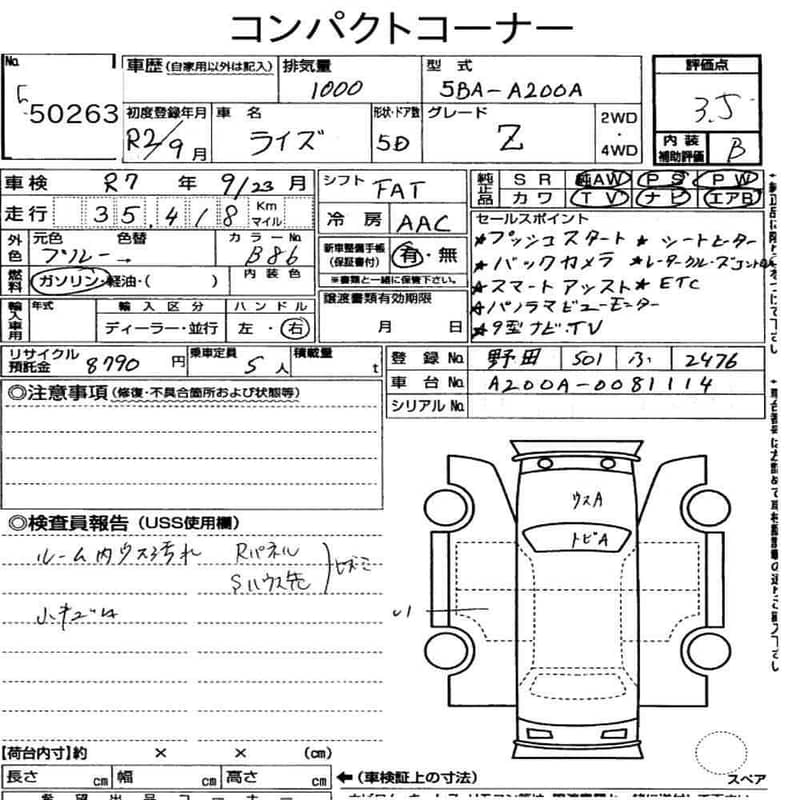 コンパクトコーナー
No. 50263
車歴(自家用以外は記入) 排気量 1000 型式 5BA-A200A 評価点 3.5
初度登録年月 R2/9月 車名 ライズ 形状・ドア数 5D グレード Z 2WD・4WD 内装補助評価 B
車検 R7年 9/23月 シフト FAT 純正品 SR 純AW PS PW
カワ TV ナビ エアB
走行 35,418 Km マイル 冷房 AAC セールスポイント
外色 元色 ブルー 色替 → カラーNo. B86 新車整備手帳(保証書付) 有・無
※書類と一緒に保管下さい。
★プッシュスタート ★シートヒーター
★バックカメラ ★レーダークルーズコントロール
★スマートアシスト ★ETC
★パノラマビューモニター
★9型ナビ.TV
燃料 ガソリン・軽油・( ) 内装色
譲渡書類有効期限 月 日
輸入車用 年式 輸入区分 ハンドル
ディーラー・並行 左・右
リサイクル預託金 8790円 乗車定員 5人 積載量 t
登録No. 野田 501 ふ 2476
車台No. A200A-0081114
シリアルNo.
◎注意事項(修復・不具合箇所および状態等)
◎検査員報告(USS使用欄)
ルーム内ウス汚れ Rパネル
Sハウス先 ヒズミ
小キズ凹
ウスA
トビA
U1
【荷台内寸】約 × × (cm)
長さ cm 幅 cm 高さ cm ←(車検証上の寸法)
スペア